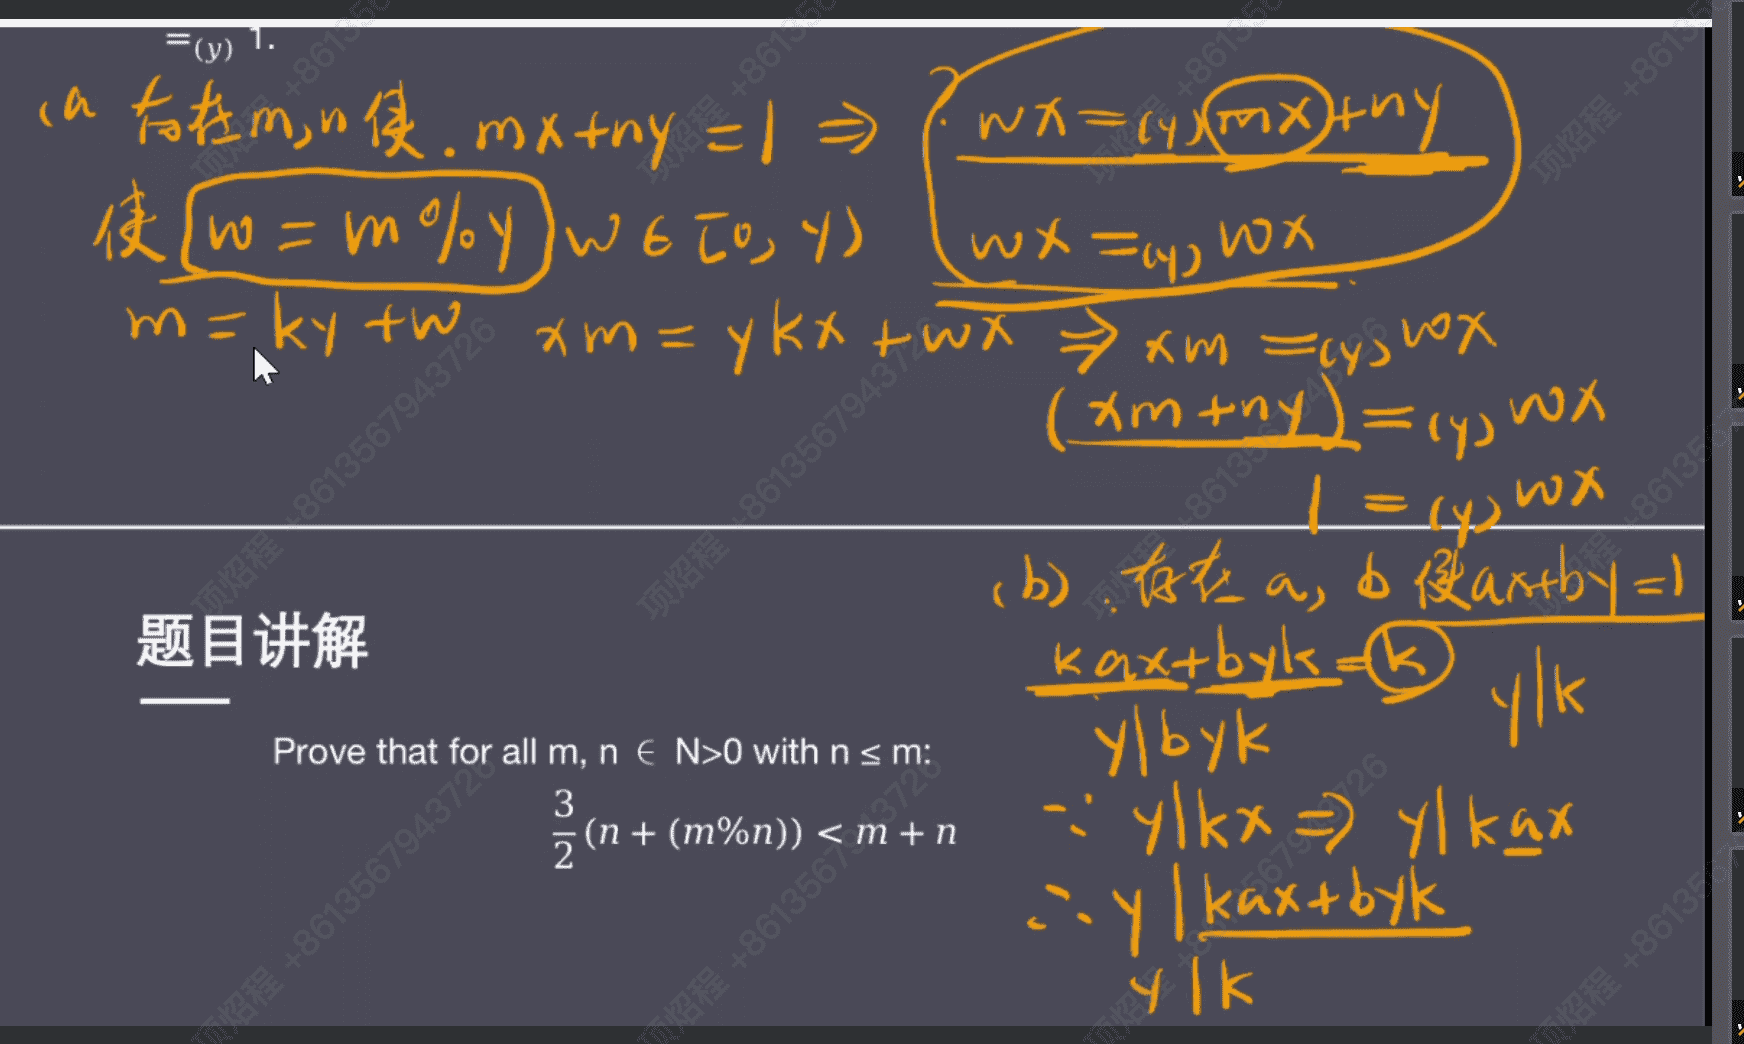 =(y) 1.
(a 存在m,n使. mx+ny=1 ⇒ wx=(y)mx+ny
使 w=m%y w∈[0,y) wx=(y)wx
m=ky+w xm=ykx+wx ⇒ xm=(y)wx
(xm+ny)=(y)wx
1=(y)wx
(b). 存在 a, b 使ax+by=1
kax+byk=k y|k
y|byk
∵ y|kx ⇒ y|kax
∴ y|kax+byk
y|k
题目讲解
Prove that for all m, n ∈ N>0 with n ≤ m:
3/2 (n + (m%n)) < m + n
项焰程 +8613567943726